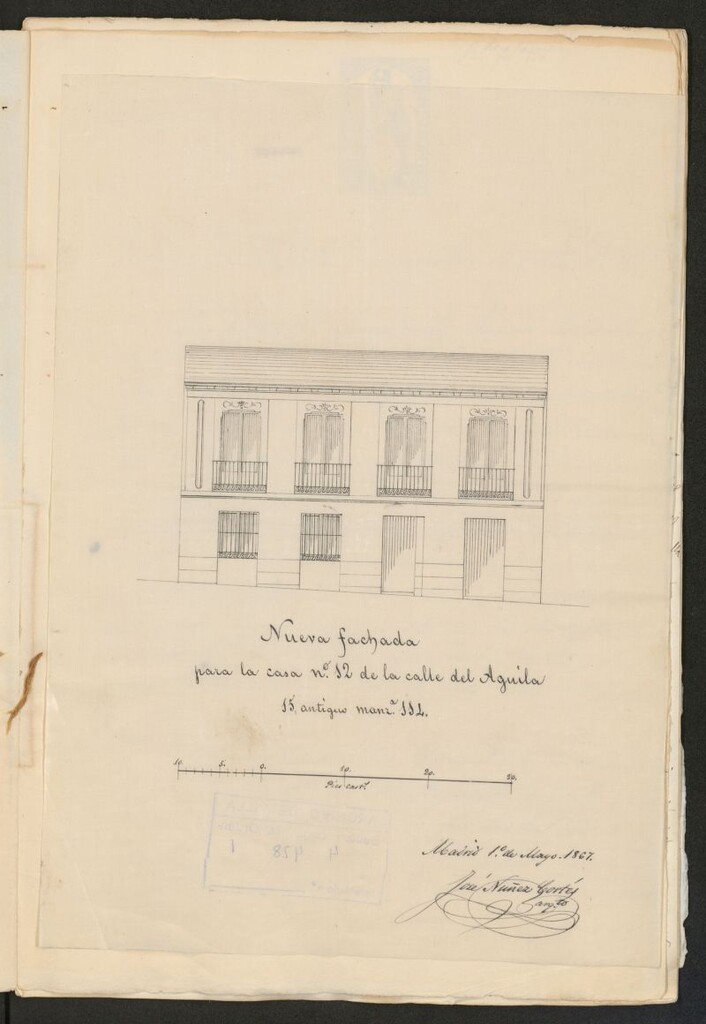 Nueva fachada
para la casa nº. 12 de la calle del Aguila
15, antiguo manz.ª 114.
10. 5. 0. 10. 20. 30.
Pies cast.s
Madrid 1.º de Mayo. 1867.
José Nuñez Cortés
arq.to
4 428 1